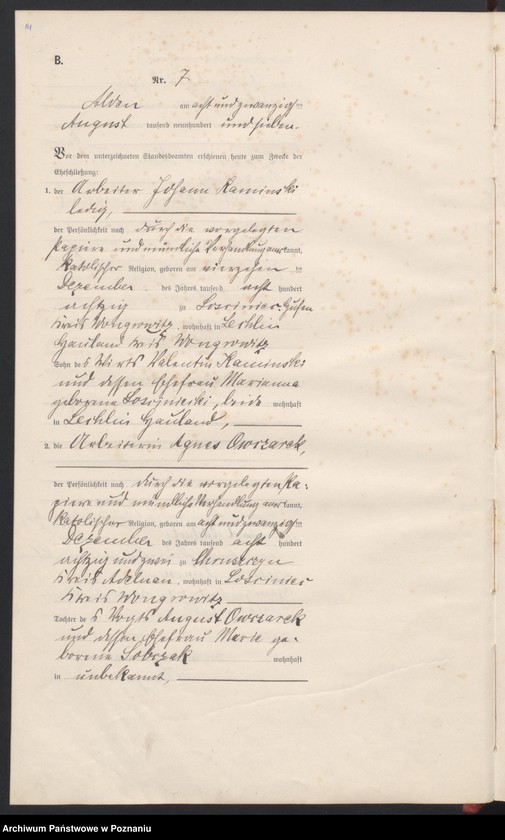 B.
Nr. 7
am acht und zwanzigsten
August tausend neunhundert und sieben.
Vor dem unterzeichneten Standesbeamten erschienen heute zum Zwecke der
Eheschließung:
1. der Arbeiter Johann Kaminski
ledig,
der Persönlichkeit nach durch die vorgelegten
Papiere und mündliche Verhandlung anerkannt,
katolischer Religion, geboren am vierzehn ten
Dezember des Jahres tausend acht hundert
achtzig zu
Kreis Wongrowitz, wohnhaft in Lechlin
Hauland Kreis Wongrowitz
Sohn des Wirts Valentin Kaminski
und dessen Ehefrau Marianna
geborene beide wohnhaft
in Lechlin Hauland,
2. die Arbeiterin Agnes Owczarek,
der Persönlichkeit nach durch die vorgelegten Pa-
piere und mündliche Verhandlung anerkannt,
katolischer Religion, geboren am acht und zwanzigsten
Dezember des Jahres tausend acht hundert
achtzig und zwei zu
Kreis Adelnau, wohnhaft in
Kreis Wongrowitz
Tochter des Vogts August Owczarek
und dessen Ehefrau Marie ge-
borene Sobczak wohnhaft
in unbekannt,
Archiwum Państwowe w Poznaniu